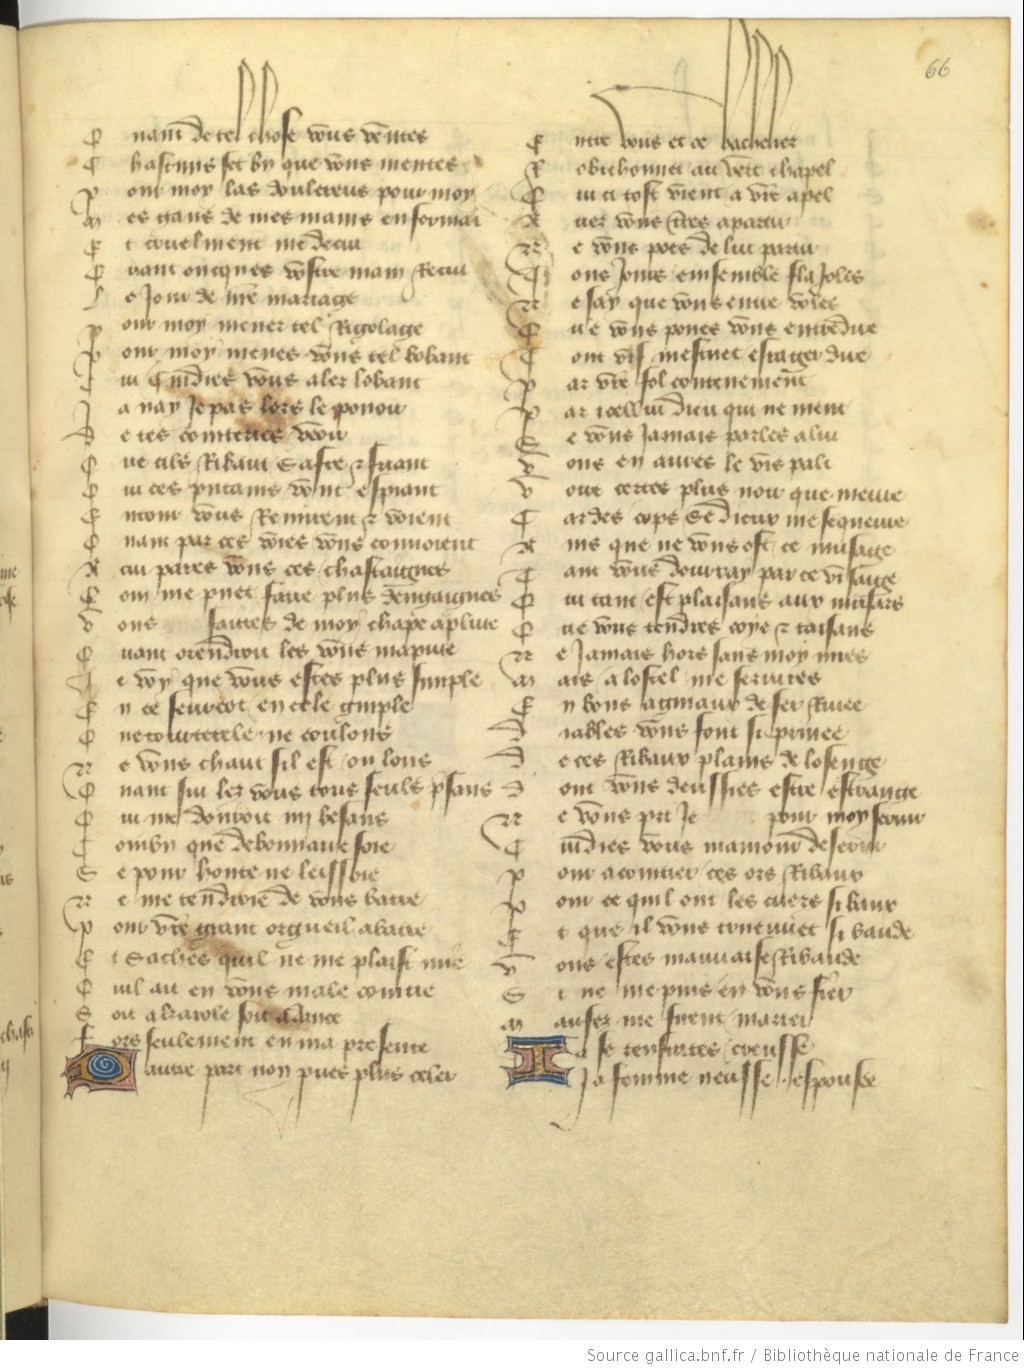 66
Quant de tel chose vous ventes
Chascuns set bn que vous mentes
Pour moy las doulereus pour moy
Mes gans de mes mains enformai
Et cruelment me deceu
Quant oncques vostre main Receu
Le Jour de nre mariage
Pour moy mener tel Rigolage
Pour moy menes vous tel bobant
Qui Cuidies vous aler lobant
Ja nay Je pas lors le pooir
De tes cointeries veoir
Que cils Ribaut Safre et friant
Qui ces putains vont espiant
Entour vous Remirent et voient
Quant par ces voies vous convoient
A cui pares vous ces chastaignes
Qui me puet faire plus dengaignes
Vous faites de moy chape a pluie
Quant orendroit les vous mapuie
Je voy que vous estes plus simple
En ce seurcot en cele guiple
Que tourterele ne coulons
Ne vous chaut sil est ou lons
Quant sui lez vous tous seuls psans
Qui me donroit iiij besans
Combn que debonnaire soie
Se pour honte ne leissoie
Ne me tendroie de vous batre
Pour vre grant orgueil abatre
Et Saches quil ne me plaist mie
Quil ait en vous nule cointie
Soit a karole soit a dance
Fors seulement en ma presence
Dautre part non pues plus celer
Entre vous et ce bacheler
Robichonnet au vert chapel
Qui ci tost vient a vre apel
Aves vous tres a partir
Ne vous poes de lui partir
Tous Jours ensemble flajoles
Ne say que vous entre voles
Que vous poues vous entredire
Tout vif mestuet esrager dire
Par vre fol contenement
Par icellui dieu qui ne ment
Se vous Jamais parles a lui
Vous en aures le vis pali
Voire certes plus noir que meure
Car des cops Se dieux me sequeure
Ains que ne vous ost ce musage
Tant vous donrray par ce visage
Qui tant est plaisans aux musars
Que vous tendres coye et taisans
Ne Jamais hors sans moy nires
Mais a lostel me servires
En bons agniaux de fer Rivee
Diables vous font si privee
De ces Ribaux plains de losenge
Dont vous deussies estre estrange
Ne vous prt Je pour moy servir
Cuidies vous mamour deservir
Pour acointier ces ors Ribaux
Pour ce quil ont les cuers si baux
Et que il vous treuvuet si baude
Vous estes mauvaise Ribaude
Si ne me puis en vous fier
Maufez me firent marier
Ha se teofrastes creusse
Ja femme neusse espousee